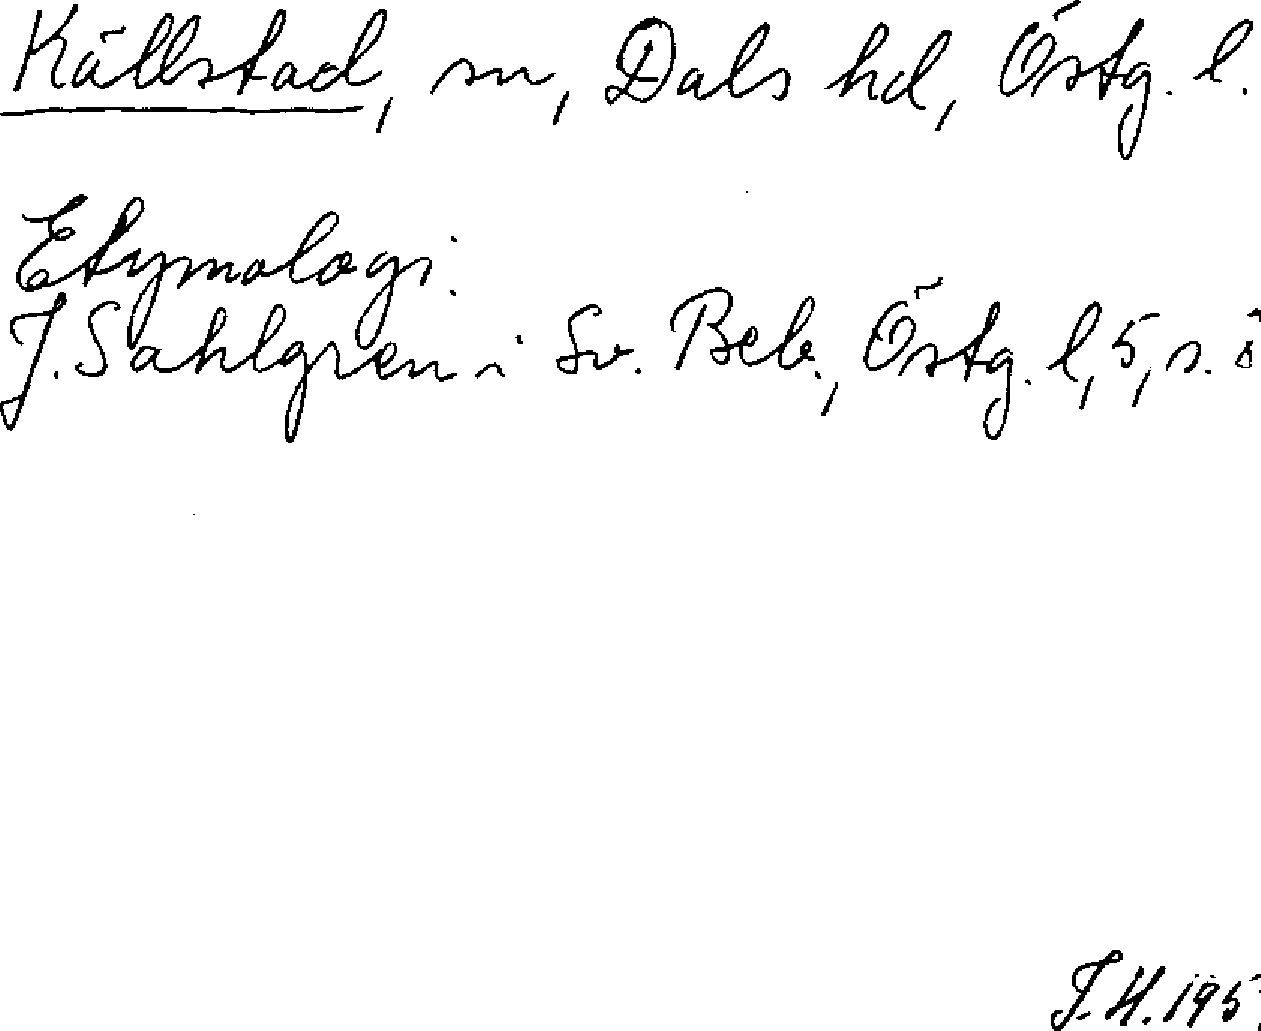 Källstad, sn, Dals hd, Östg. l.
Etymologi.
J. Sahlgren i Sv. Beb., Östg. l, 5, s.
J.H. 195